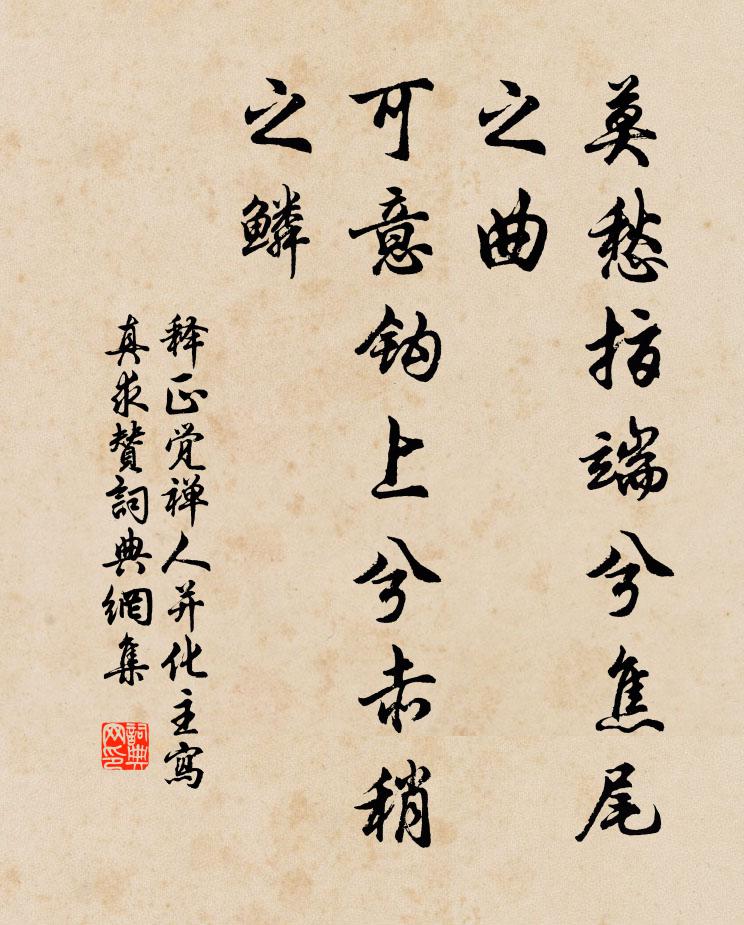 莫愁指端兮焦尾
之曲
可意钩上兮赤稍
之鳞
释正觉禅人并化主寫
真求赞詞典網集
詞典网印